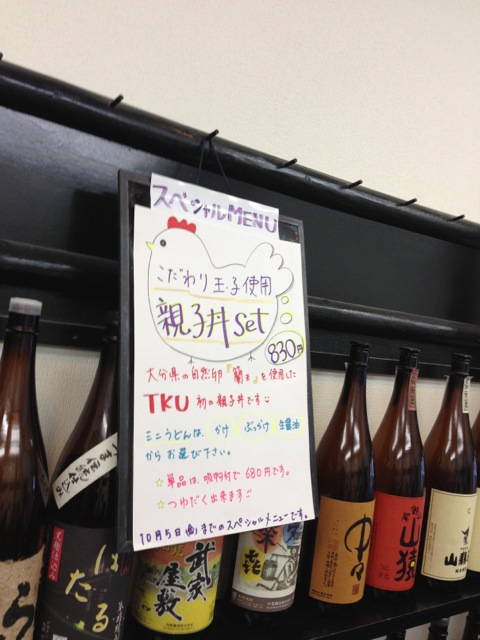 スペシャルMENU
こだわり玉子使用
親子丼set
830円
大分県の自然卵『蘭王』を使用した
TKU 初の親子丼です
ミニうどんは、かけ ぶっかけ 生醤油
からお選び下さい。
☆単品は、吸物付で680円です。
☆つゆだく出来ます
10月5日(金)までのスペシャルメニューです。
はたる
武家
屋敷
山猿
山猿